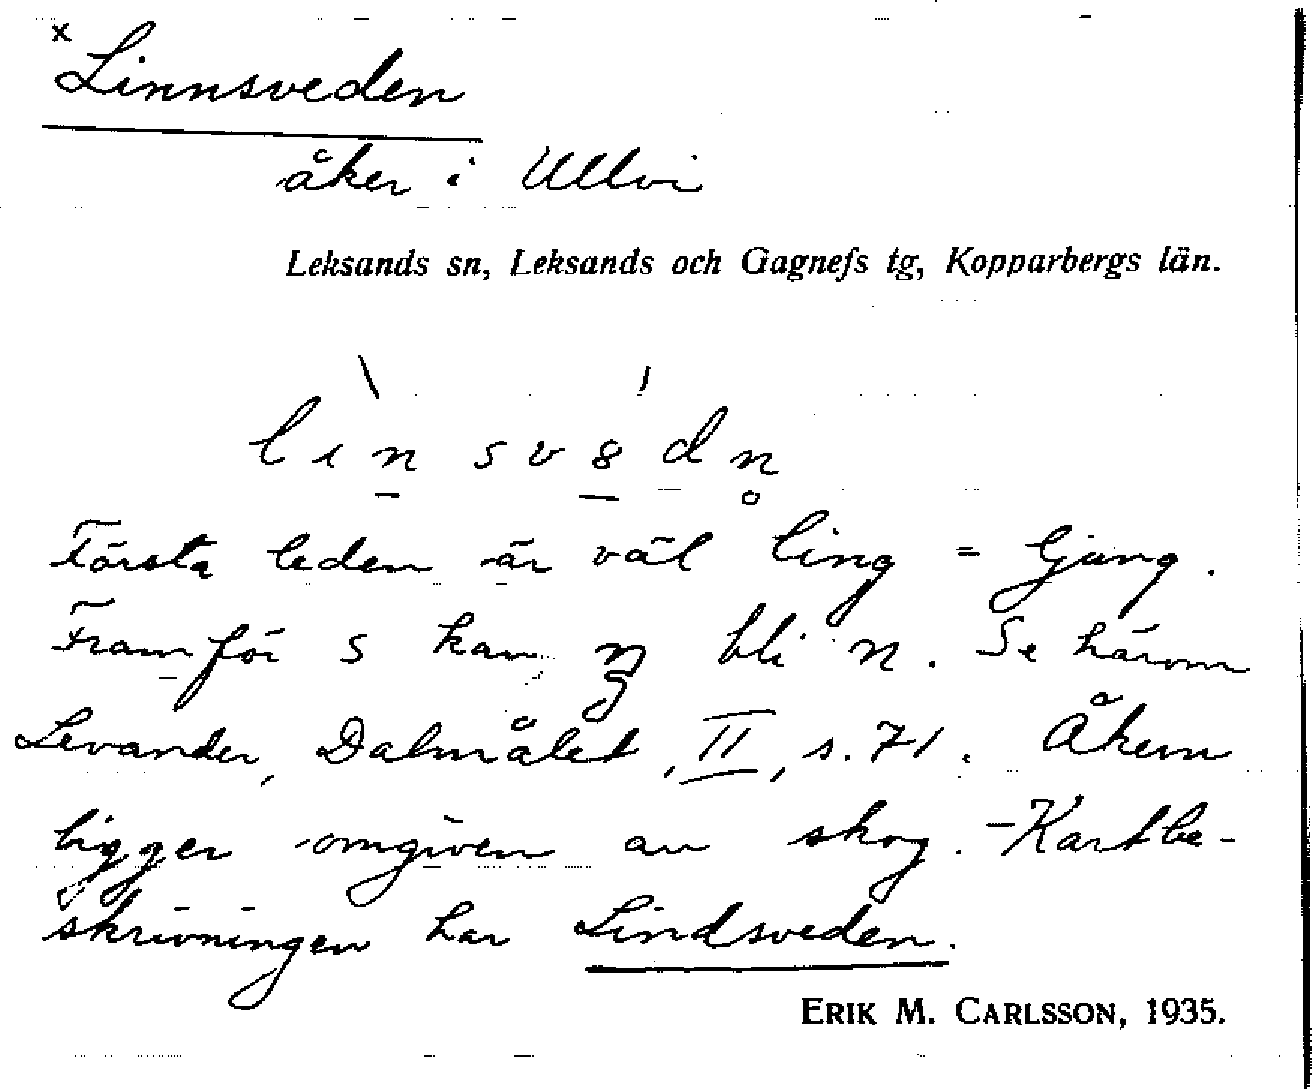 x
Linnsveden
åker i Ullvi
Leksands sn, Leksands och Gagnefs tg, Kopparbergs län.
Första leden är väl ling = ljung.
Framför s kan ŋ bli n. Se härom
Levander, Dalmålet, II, s. 71. Åkern
ligger omgiven av skog. - Kartbe-
skrivningen har Lindsveden.
ERIK M. CARLSSON, 1935.